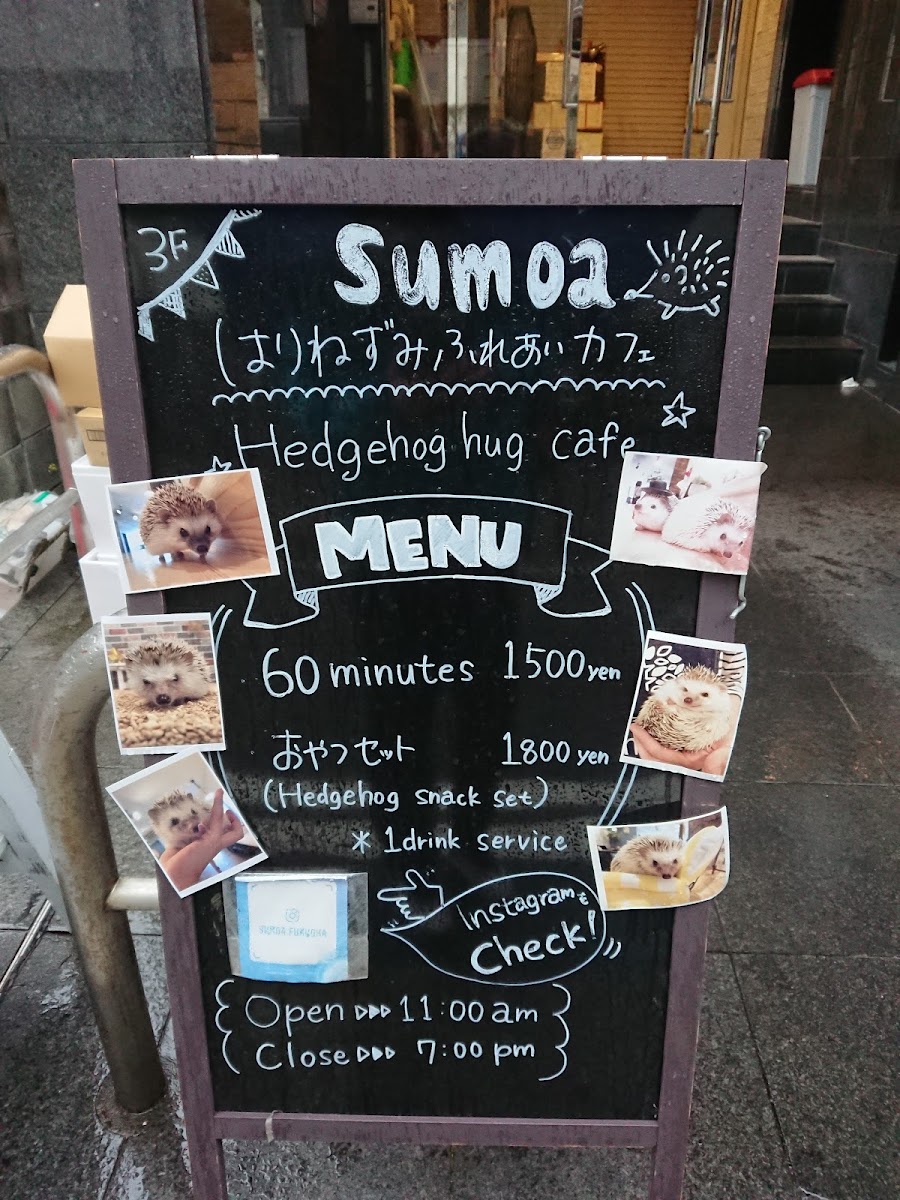 3F
Sumoa
はりねずみふれあいカフェ
Hedgehog hug cafe
MENU
60 minutes 1500yen
おやつセット 1800yen
(Hedgehog snack set)
* 1drink service
Instagramも
Check!
SUMOA.FUKUOKA
Open ▷▷▷ 11:00 am
Close ▷▷▷ 7:00 pm